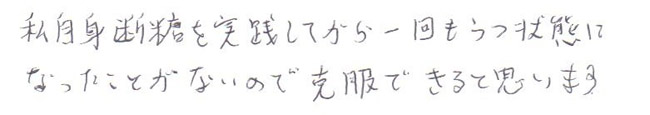 私自身断糖を実践してから一回もうつ状態に
なったことがないので克服できると思います